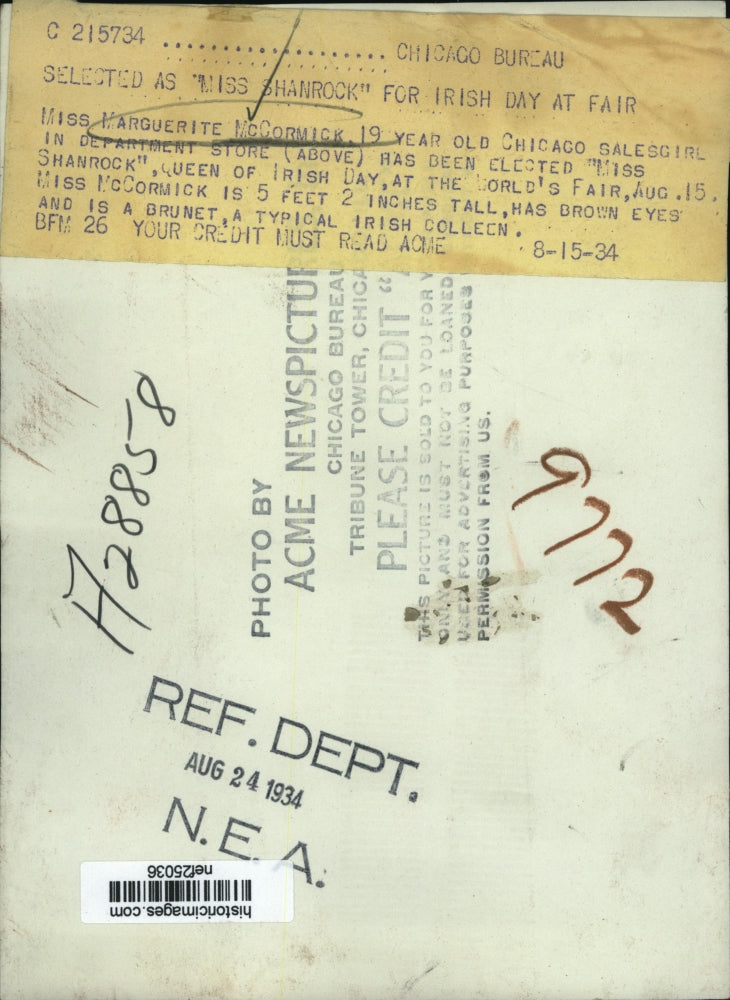 C 215734 .................... CHICAGO BUREAU
SELECTED AS "MISS SHANROCK" FOR IRISH DAY AT FAIR
MISS MARGUERITE MCCORMICK, 19 YEAR OLD CHICAGO SALESGIRL
IN DEPARTMENT STORE (ABOVE) HAS BEEN ELECTED "MISS
SHANROCK", QUEEN OF IRISH DAY, AT THE WORLD'S FAIR, AUG. 15.
MISS MCCORMICK IS 5 FEET 2 INCHES TALL, HAS BROWN EYES
AND IS A BRUNET, A TYPICAL IRISH COLLEEN.
BFM 26 YOUR CREDIT MUST READ ACME 8-15-34
PHOTO BY
ACME NEWSPICTU
CHICAGO BUREAU
TRIBUNE TOWER, CHICA
PLEASE CREDIT "
THIS PICTURE IS SOLD TO YOU FOR
ONLY AND MUST NOT BE LOANED
USED FOR ADVERTISING PURPOSES
PERMISSION FROM US.
H28858
9772
REF. DEPT.
AUG 24 1934
N. E. A.
historicimages.com
nef25036